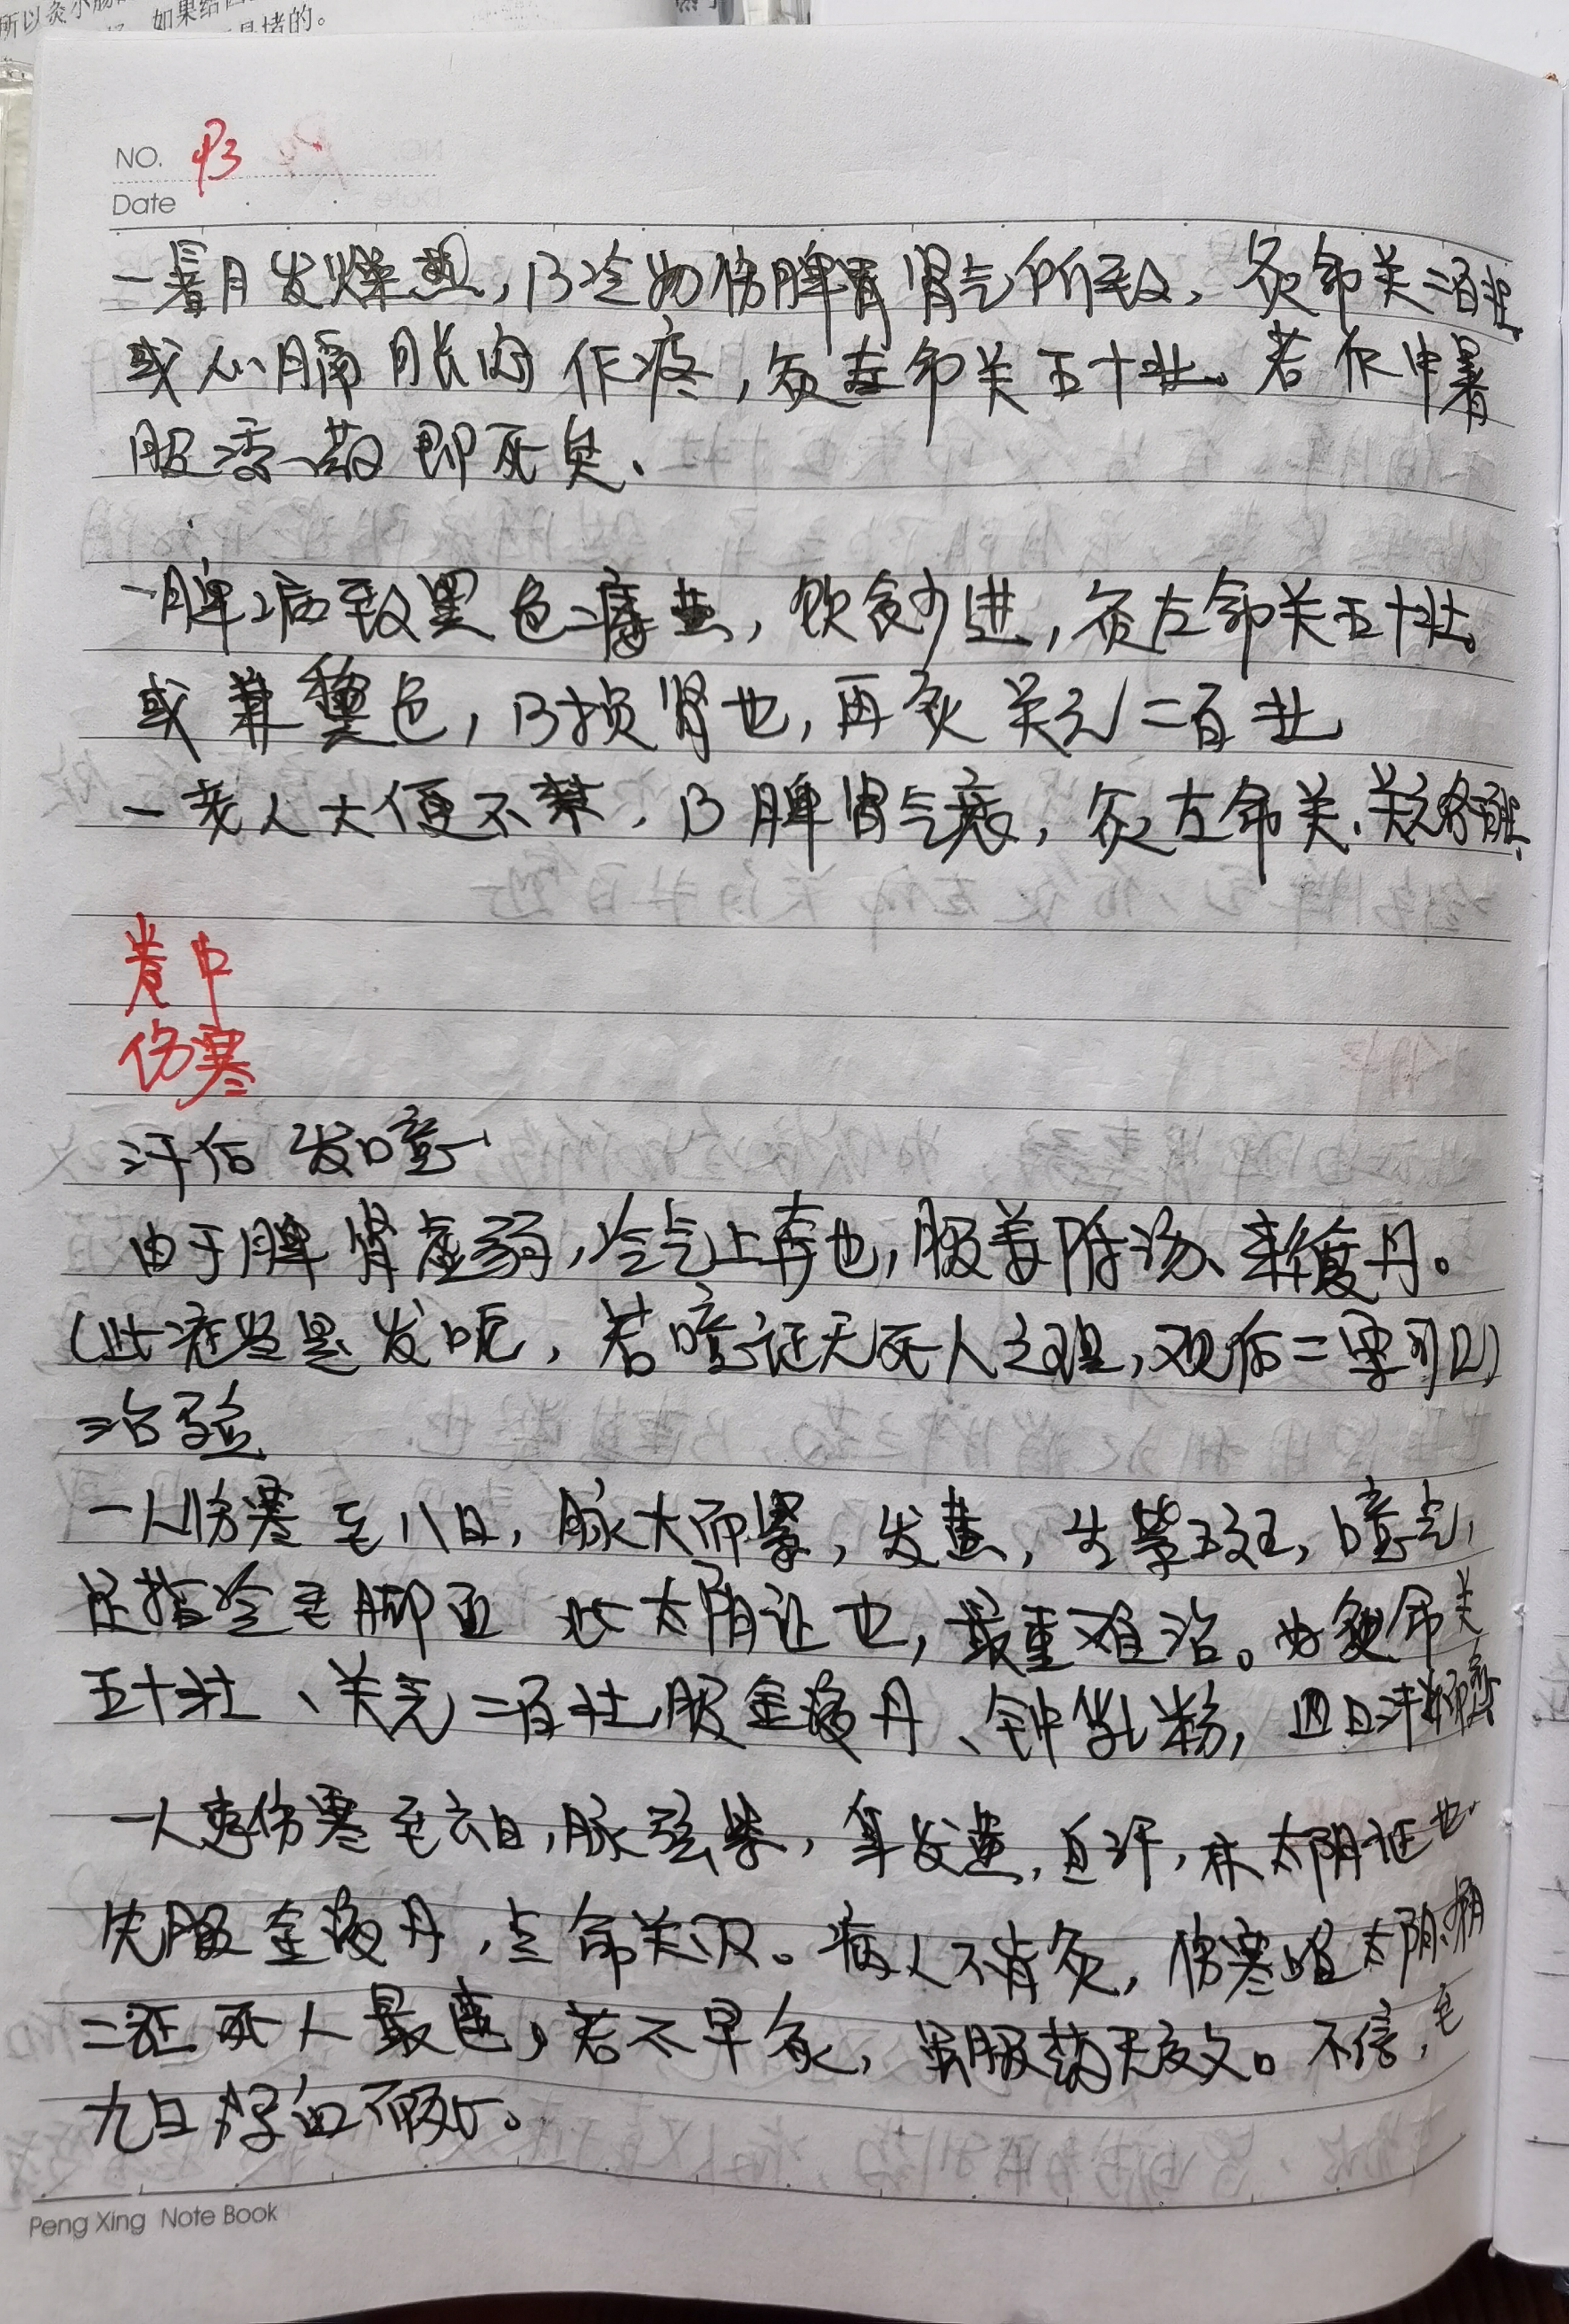 所以灸小肠
如果给
是堵的。
NO. P3
Date
一暑月发燥热,乃冷物伤脾胃肾气所致,灸命关二百壮
或心膈胀闷作疼,灸左命关五十壮。若作中暑
服凉药即死矣。
一脾病致黑色痿黄,饮食少进,灸左命关五十壮。
或兼黧色,乃损肾也,再灸关元二百壮
一老人大便不禁,乃脾肾气衰,灸左命关、关元各二百壮
卷中
伤寒
汗后发噫
由于脾肾虚弱,冷气上奔也,服姜附汤、来复丹。
(此症当是发呃,若噫证无死人之理,观后二案可见)
治验
一人伤寒至八日,脉大而紧,发黄,生紫斑,噫气,
足指冷至脚面 此太阴证也,最重难治。为灸命关
五十壮、关元二百壮服金液丹、钟乳粉,四日汗出而愈
一人患伤寒至六日,脉弦紧,身发黄,自汗,亦太阴证也
先服金液丹,点命关穴。病人不肯灸,伤寒唯太阴、少阴
二证死人最速,若不早灸,虽服药无效。不信,至
九日泻血而死。
Peng Xing Note Book